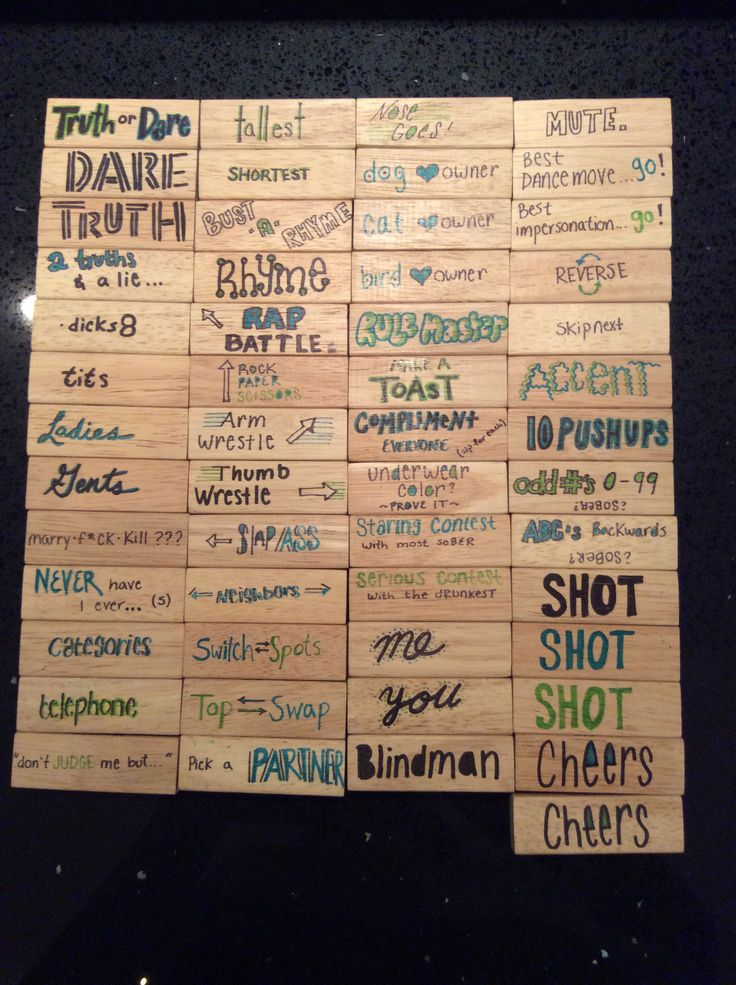 Truth or Dare
DARE
TRUTH
2 truths
& a lie...
·dicks 8
tits
Ladies
Gents
marry·f*ck·kill ???
NEVER have
I ever... (5)
categories
telephone
"don't JUDGE me but..."
tallest
SHORTEST
BUST
·A·
RHYME
Rhyme
RAP
BATTLE.
ROCK
PAPER
SCISSORS
Arm
wrestle
Thumb
Wrestle
SlAP/ASS
NEIGHBORS
Switch Spots
Top Swap
Pick a PARTNER
Nose
Goes!
dog owner
cat owner
bird owner
RULE Master
MAKE A
TOAST
COMPLIMENT
EVERYONE (sip for each)
underwear
color?
~PROVE IT~
Staring Contest
with most SOBER
Serious Contest
with the drunkest
me
you
Blindman
MUTE.
Best
DANCE move...go!
Best
impersonation...go!
REVERSE
Skip next
ACCENT
10 PUSHUPS
odd #'s 0-99
SOBER?
ABC's Backwards
SOBER?
SHOT
SHOT
SHOT
Cheers
Cheers